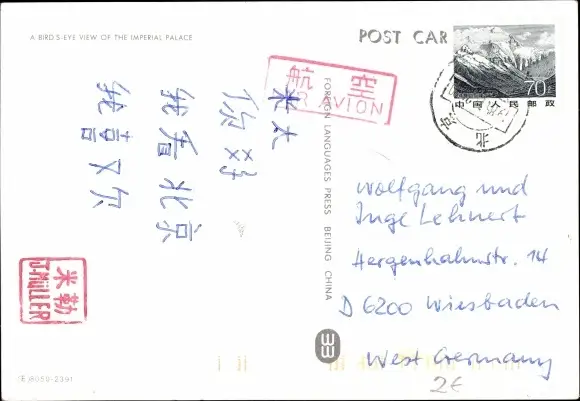 A BIRD'S-EYE VIEW OF THE IMPERIAL PALACE
POST CAR
70分
中国人民邮政
北京
航空
PAR AVION
你好
我看北京
FOREIGN LANGUAGES PRESS BEIJING CHINA
Wolfgang und
Inge Lehnert
Hergenhahnstr. 14
D 6200 Wiesbaden
West Germany
米勒
J·MÜLLER
(E)8050-2391
2€